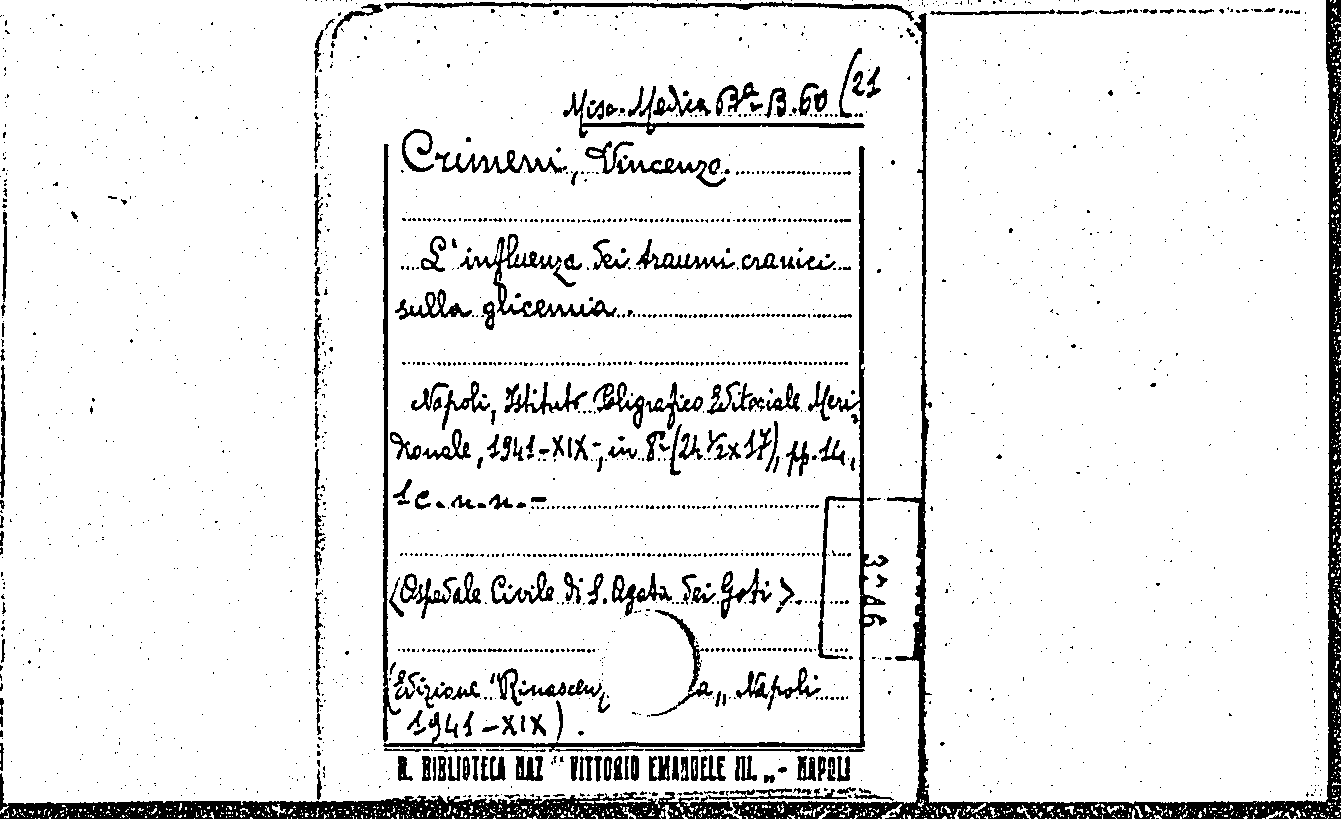 Misc. Medica Bª B. 60 (21
Crimeni, Vincenzo.
L'influenza dei traumi cranici
sulla glicemia.
Napoli, Istituto Poligrafico Editoriale Meri-
dionale, 1941-XIX-, in 8º (24 ½ x 17), pp. 14,
1 c. n. n. -
(Ospedale Civile di S. Agata dei Goti).
(Edizione "Rinascen a„ Napoli
1941-XIX).
R. BIBLIOTECA NAZ "VITTORIO EMANUELE III.„ - NAPOLI